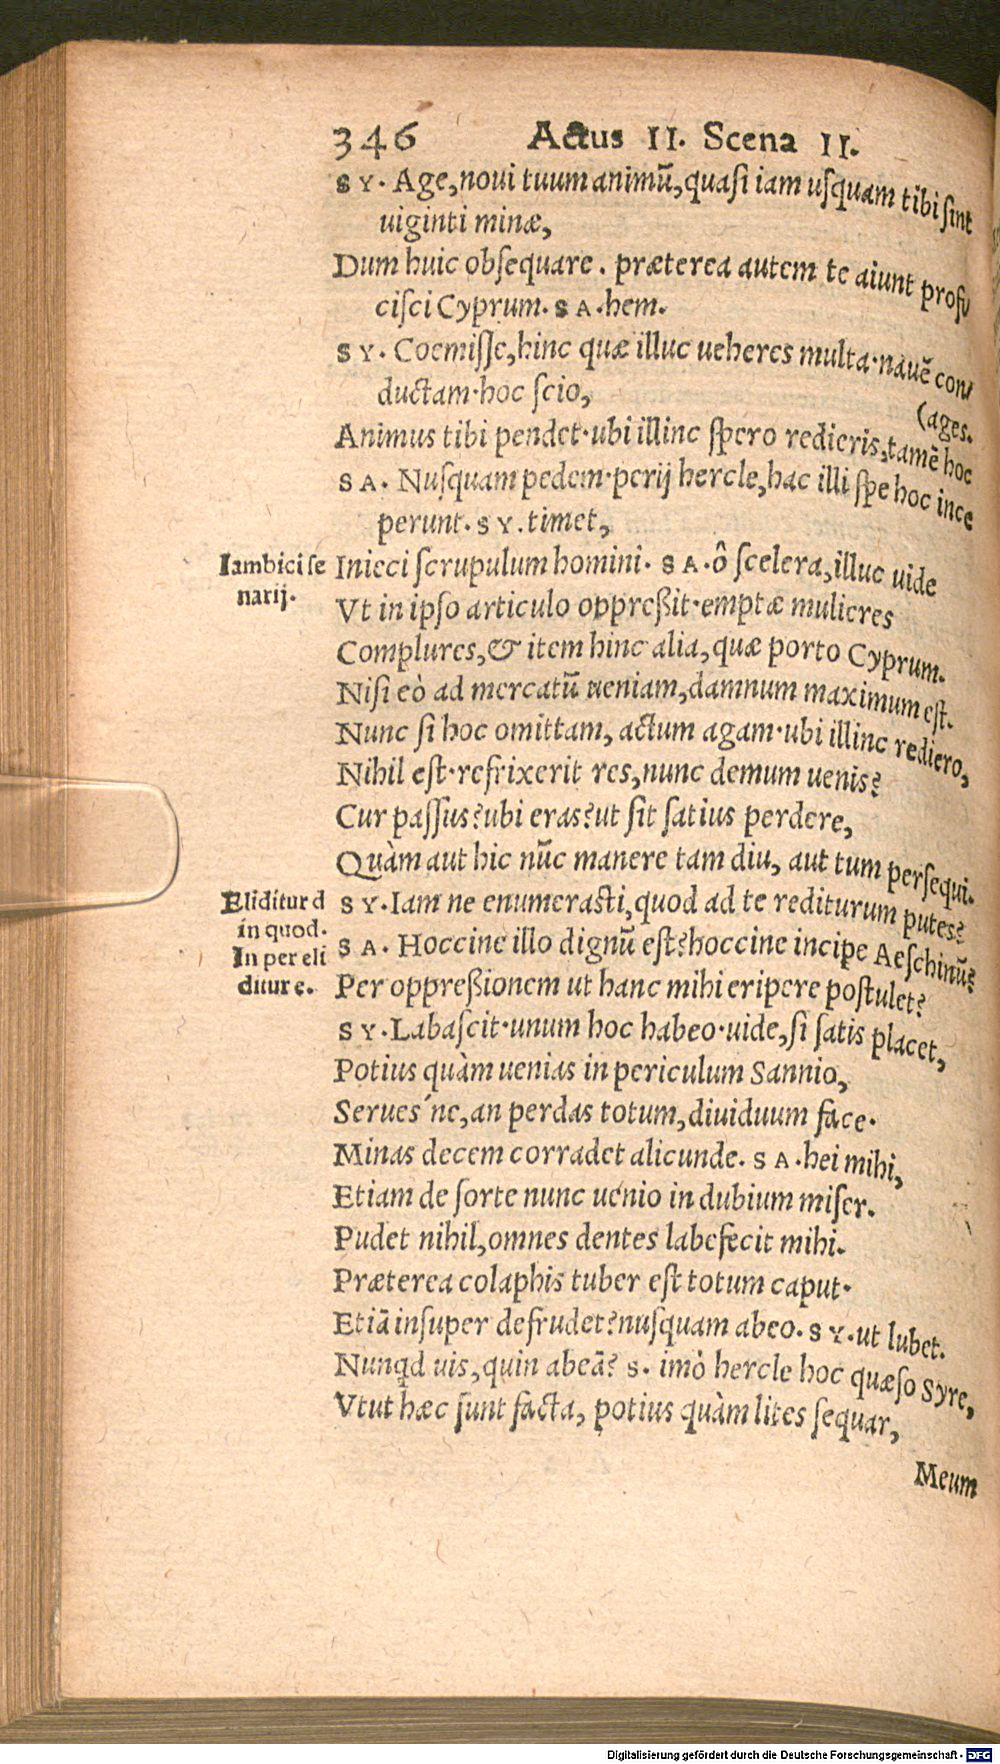 346 Actus II. Scena II.
SY. Age, novi tuum animū, quasi iam uſquam tibi ſint
uiginti minæ,
Dum huic obſequare. præterea autem te aiunt profi⸗
ciſci Cyprum. SA. hem.
SY. Coemiſſe, hinc quæ illuc ueheres multa. nauē con⸗
ductam. hoc ſcio,
(ages.
Animus tibi pendet. ubi illinc ſpero redieris, tamē hoc
SA. Nuſquam pedem. perij hercle, hac illi ſpe hoc ince
perunt. SY. timet,
Inieci ſcrupulum homini. SA. ô ſcelera, illuc uide
Vt in ipſo articulo oppreßit. emptæ mulieres
Complures, & item hinc alia, quæ porto Cyprum.
Niſi eò ad mercatū ueniam, damnum maximum eſt.
Nunc ſi hoc omittam, actum agam. ubi illinc rediero,
Nihil eſt. refrixerit res, nunc demum uenis?
Cur paſſus? ubi eras? ut ſit ſatius perdere,
Quàm aut hic nūc manere tam diu, aut tum perſequi.
SY. Iam ne enumeraſti, quod ad te rediturum putes?
SA. Hoccine illo dignū eſt? hoccine incipe Aeſchinū?
Per oppreßionem ut hanc mihi eripere poſtulet?
SY. Labaſcit. unum hoc habeo. uide, ſi ſatis placet,
Potius quàm uenias in periculum Sannio,
Serues´ne, an perdas totum, diuiduum face.
Minas decem corradet alicunde. SA. hei mihi,
Etiam de ſorte nunc uenio in dubium miſer.
Pudet nihil, omnes dentes labefecit mihi.
Præterea colaphis tuber eſt totum caput.
Etiā inſuper defrudet? nuſquam abeo. SY. ut lubet.
Nunqd uis, quin abeā? S. imò hercle hoc quæſo Syre,
Vtut hæc ſunt facta, potius quàm lites ſequar,
Meum
Iambici ſe
narij.
Eliditur d
in quod.
In per eli
ditur e.
Digitalisierung gefördert durch die Deutsche Forschungsgemeinschaft - DFG